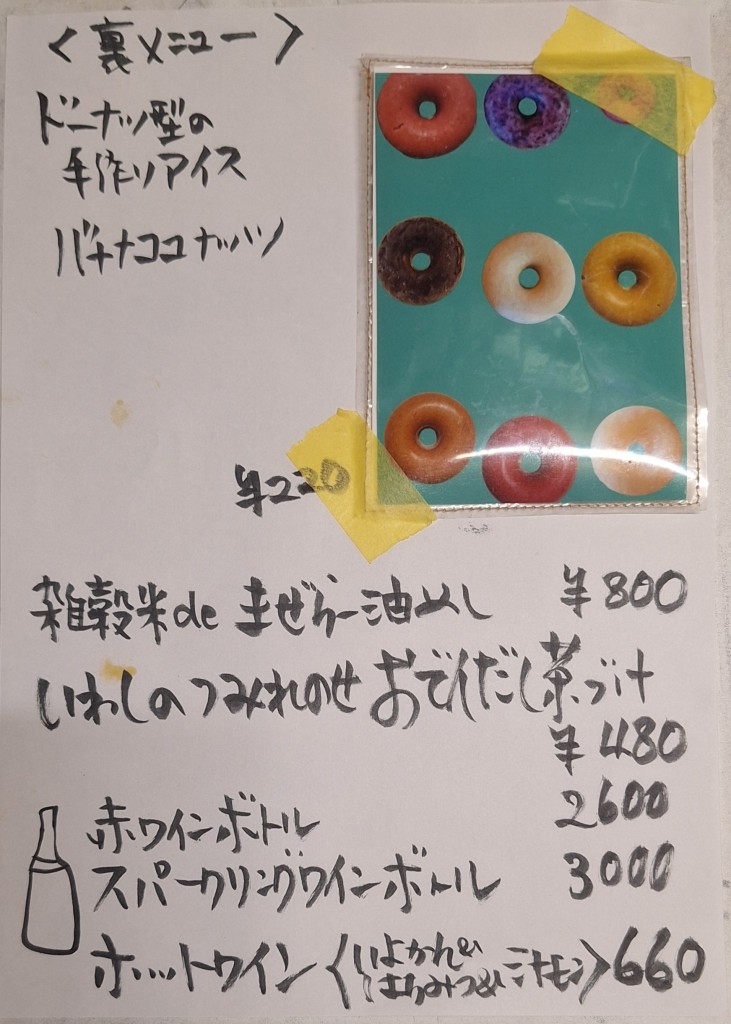 〈裏メニュー〉
ドーナッツ型の
手作りアイス
バナナココナッツ
¥220
雑穀米de まぜらー油めし ¥800
いわしのつみれのせ おでんだし茶づけ
¥480
赤ワインボトル 2600
スパークリングワインボトル 3000
ホットワイン〈いよかん&
はちみつ&シナモン〉660